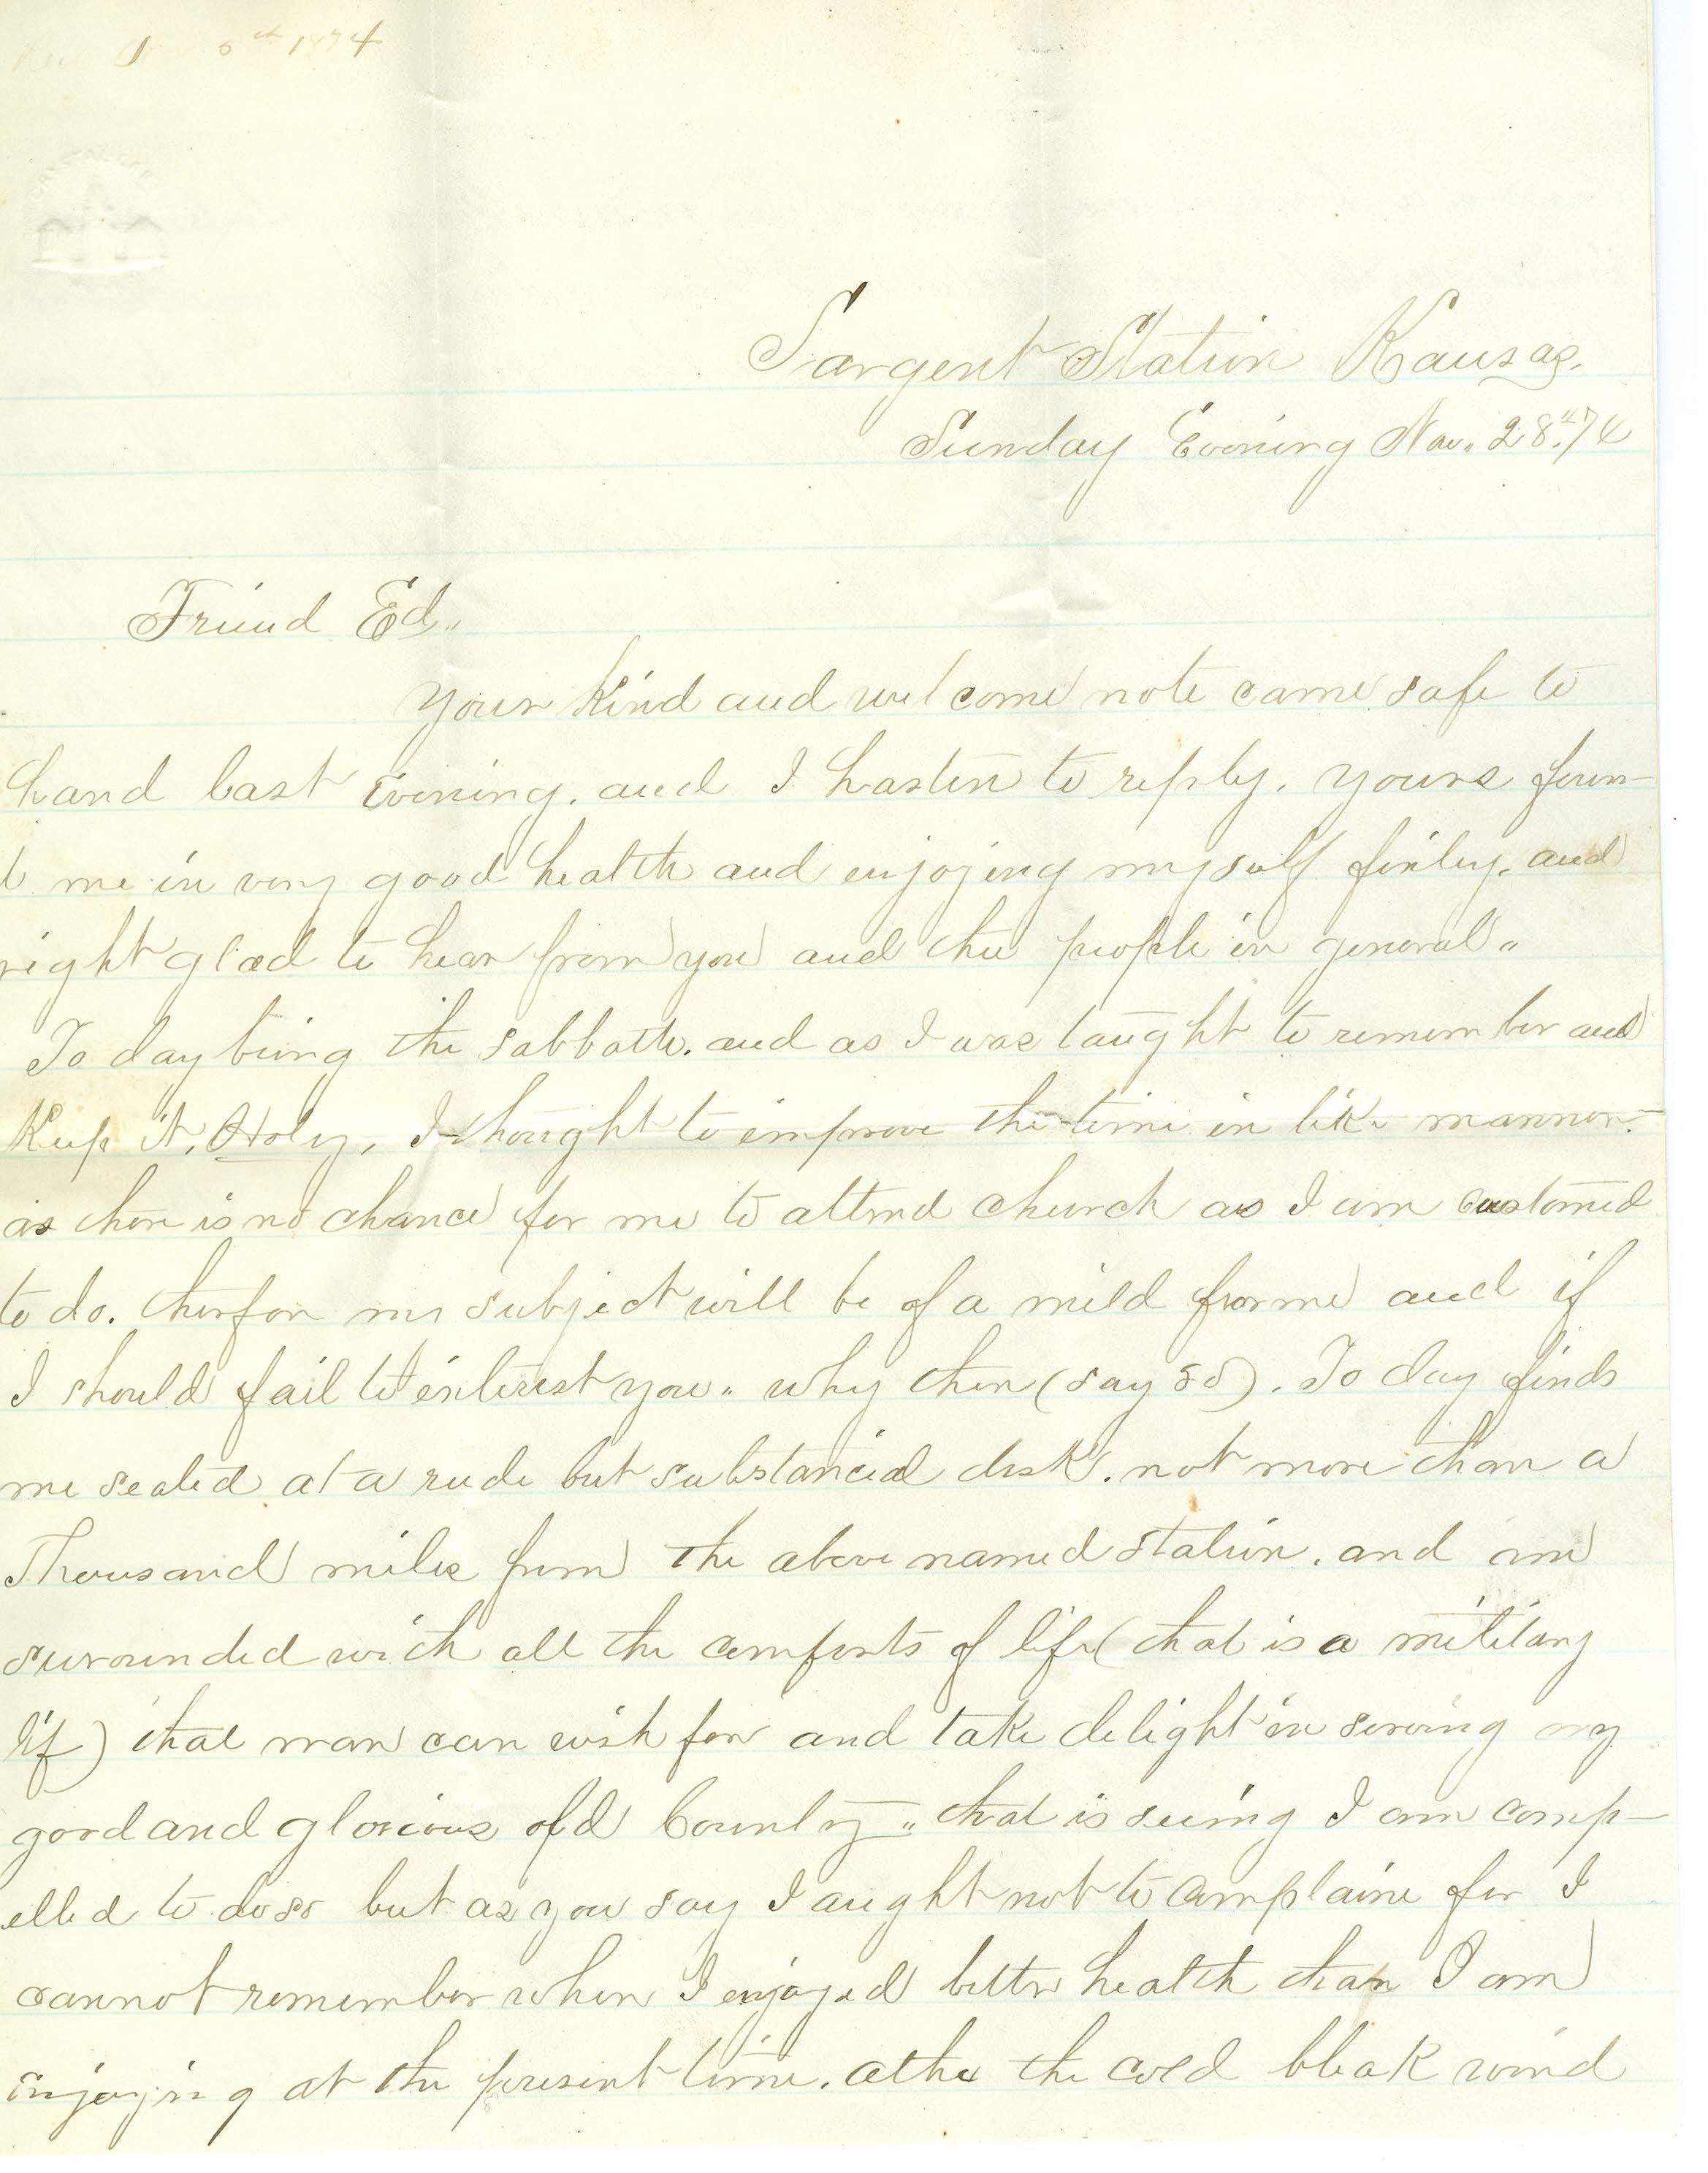 5th 1874
Sargent Station Kansas.
Sunday Evening Nov. 28th 74
Friend Ed,,
Your kind and welcome note came safe to
hand last Evening. and I hasten to reply. Yours foun-
d me in very good health and enjoying myself finley. and
right glad to hear from you and the people in general,,
To day being the sabbath. and as I was taught to remember and
Keep it, Holy, I thought to improve the time in like mannor.
as there is no chance for me to attend church as I am customed
to do. therfore my subject will be of a mild forme and if
I should fail to interest you,, why then (say so). To day finds
me seated at a rude but substancial desk. not more than a
Thousand miles from the above named station. and am
surounded with all the comforts of life (that is a military
life) that man can wish for and take delight in serving my
good and glorious old Country,, that is seeing I am comp-
elled to do so but as you say I aught not to complaine for I
cannot remember when I enjoyed better health than I am
enjoying at the present time. altho the cold bleak wind